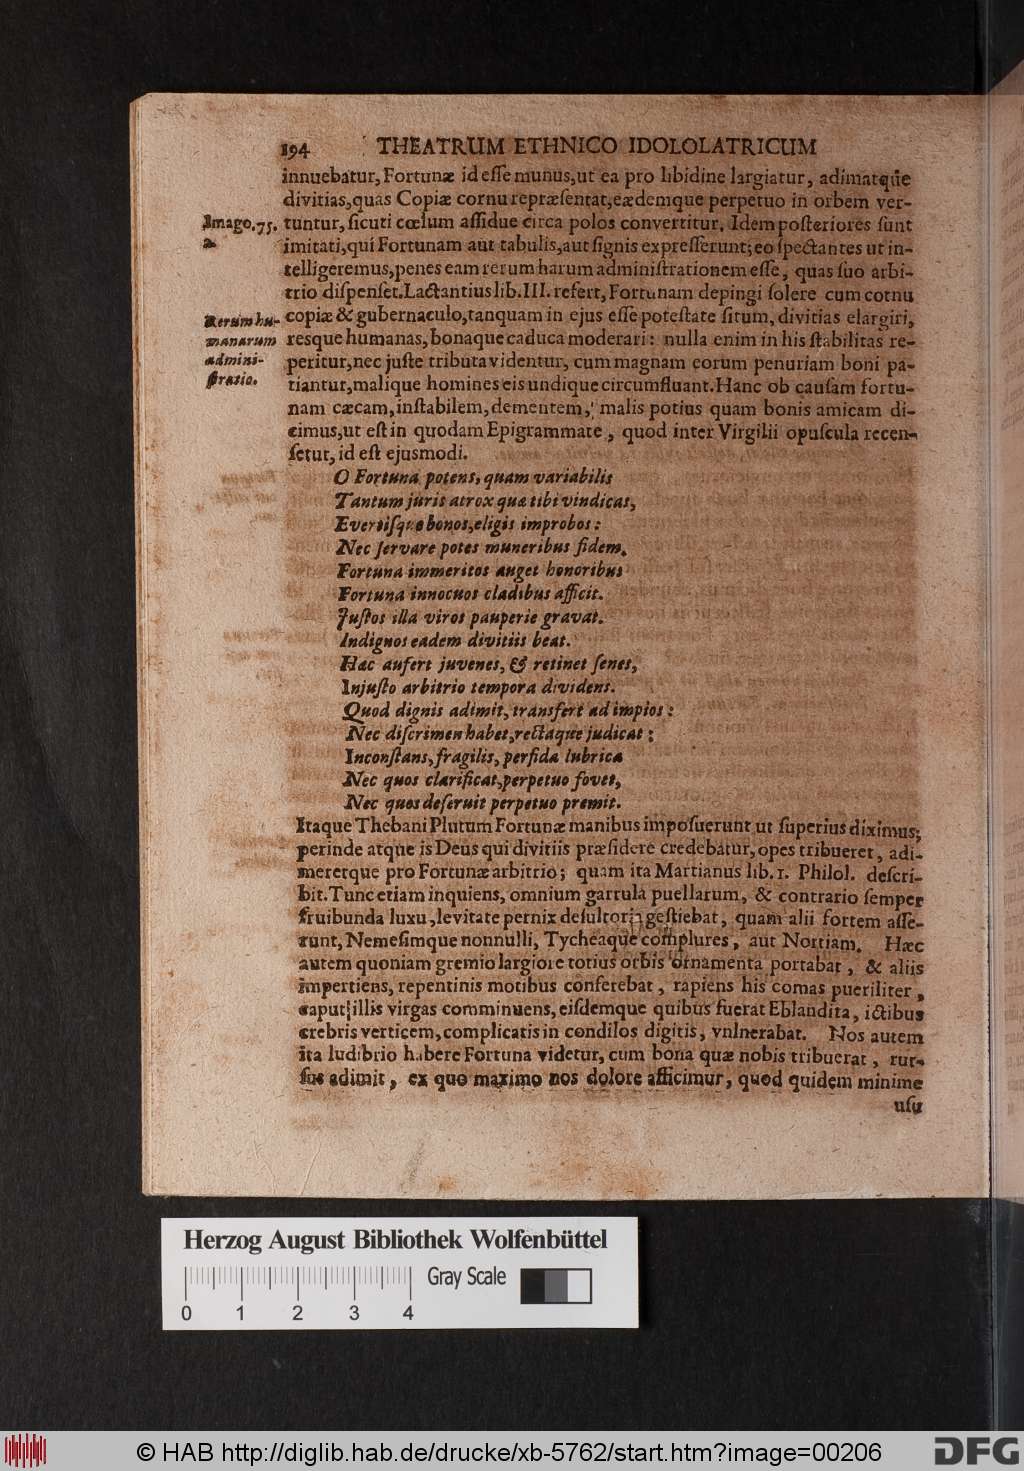 194 THEATRUM ETHNICO IDOLOLATRICUM
innuebatur, Fortunæ id eſſe munus, ut ea pro libidine largiatur, adimatque
divitias, quas Copiæ cornu repræſentat, eædemque perpetuo in orbem ver-
Imago. 75. tuntur, ſicuti cœlum aſſidue circa polos convertitur. Idem poſteriores ſunt
a. imitati, qui Fortunam aut tabulis, aut ſignis expreſſerunt; eo ſpectantes ut in-
telligeremus, penes eam rerum harum adminiſtrationem eſſe, quas ſuo arbi-
trio diſpenſet. Lactantius lib. III. refert, Fortunam depingi ſolere cum cornu
Rerum hu- copiæ & gubernaculo, tanquam in ejus eſſe poteſtate ſitum, divitias elargiri,
manarum resque humanas, bonaque caduca moderari: nulla enim in his ſtabilitas re-
admini- peritur, nec juſte tributa videntur, cum magnam eorum penuriam boni pa-
ſtratio. tiantur, malique homines eis undique circumfluant. Hanc ob cauſam fortu-
nam cæcam, inſtabilem, dementem, malis potius quam bonis amicam di-
cimus, ut eſt in quodam Epigrammate, quod inter Virgilii opuſcula recen-
ſetur, id eſt ejusmodi.
O Fortuna potens, quam variabilis
Tantum juris atrox quæ tibi vindicas,
Evertiſque bonos, eligis improbos:
Nec ſervare potes muneribus fidem.
Fortuna immeritos auget honoribus
Fortuna innocuos cladibus afficit.
Juſtos illa viros pauperie gravat.
Indignos eadem divitiis beat.
Hac aufert juvenes, & retinet ſenes,
Injuſto arbitrio tempora dividens.
Quod dignis adimit, transfert ad impios:
Nec diſcrimen habet, rectaque judicat:
Inconſtans, fragilis, perfida lubrica
Nec quos clarificat, perpetuo fovet,
Nec quos deſeruit perpetuo premit.
Itaque Thebani Plutum Fortunæ manibus impoſuerunt ut ſuperius diximus;
perinde atque is Deus qui divitiis præſidere credebatur, opes tribueret, adi-
meretque pro Fortunæ arbitrio; quam ita Martianus lib. 1. Philol. deſcri-
bit. Tunc etiam inquiens, omnium garrula puellarum, & contrario ſemper
fruibunda luxu, levitate pernix deſultoria geſtiebat, quam alii fortem aſſe-
runt, Nemeſimque nonnulli, Tycheaque complures, aut Nortiam. Hæc
autem quoniam gremio largiore totius orbis ornamenta portabat, & aliis
impertiens, repentinis motibus conferebat, rapiens his comas pueriliter,
caput illis virgas comminuens, eiſdemque quibus fuerat Eblandita, ictibus
crebris verticem, complicatis in condilos digitis, vnlnerabat. Nos autem
ita ludibrio habere Fortuna videtur, cum bona quæ nobis tribuerat, rur-
ſus adimit, ex quo maximo nos dolore afficimur, quod quidem minime
uſu
Herzog August Bibliothek Wolfenbüttel
Gray Scale
0 1 2 3 4
© HAB http://diglib.hab.de/drucke/xb-5762/start.htm?image=00206
DFG